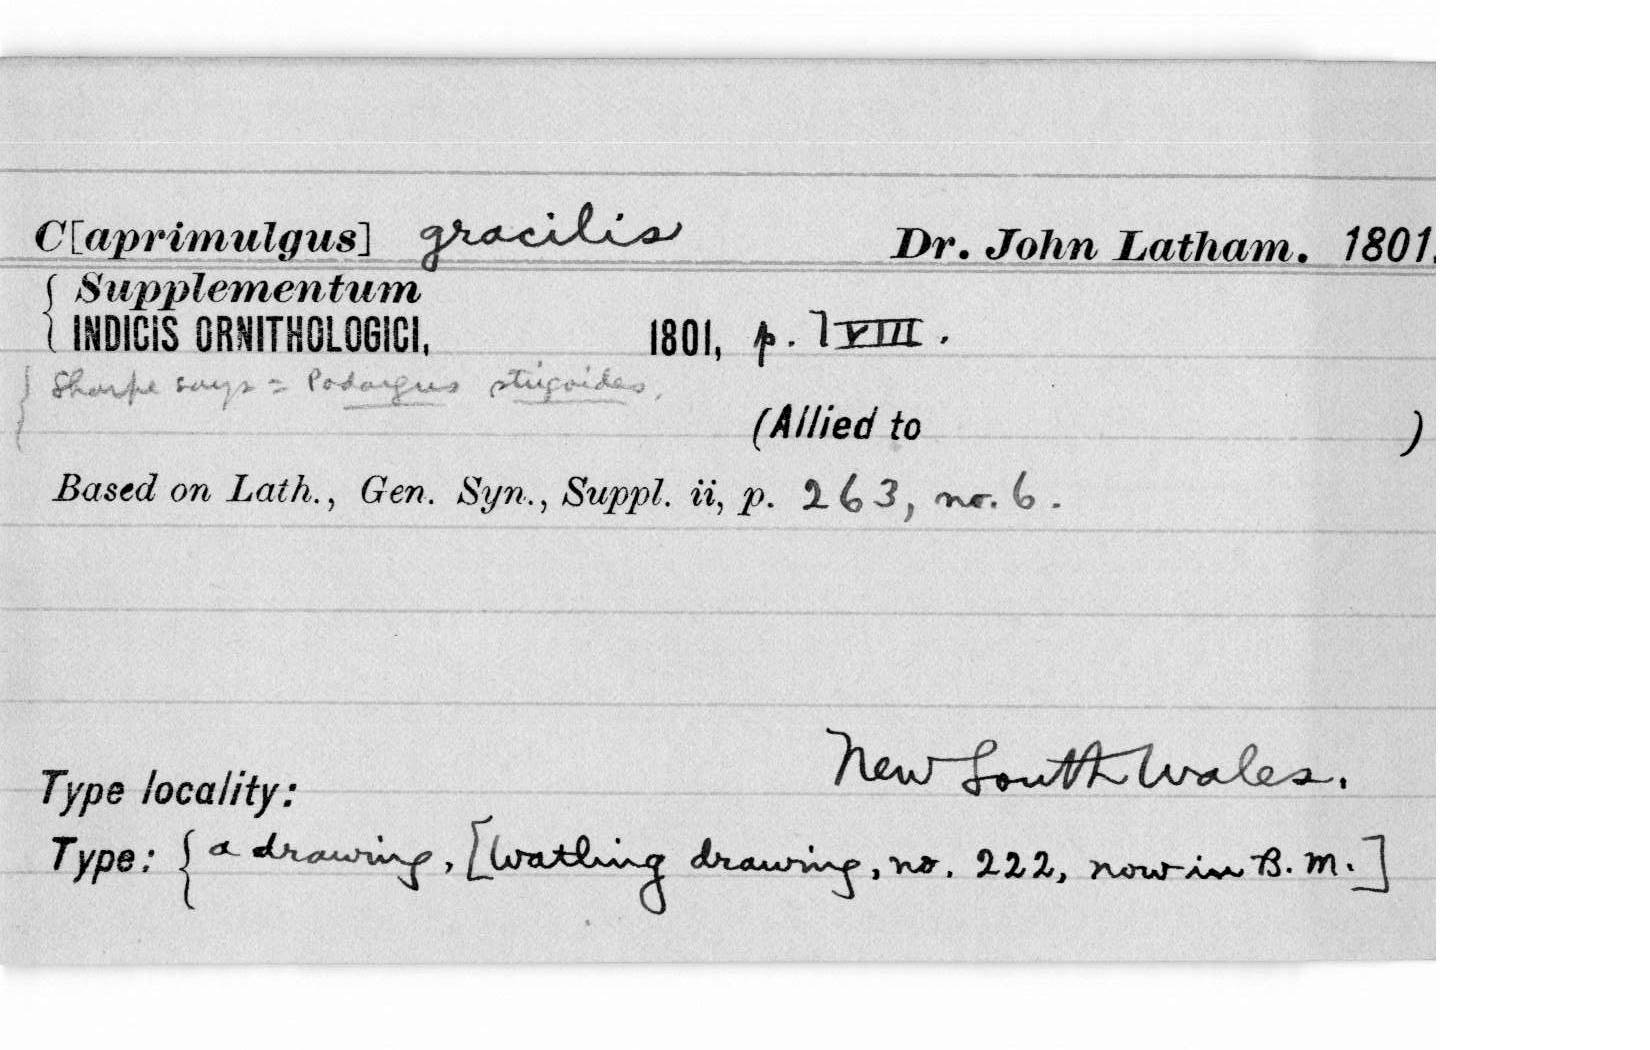 C[aprimulgus] gracilis Dr. John Latham. 1801.
{ Supplementum
INDICIS ORNITHOLOGICI, 1801, p. lVIII.
{ Sharpe says = Podargus strigoides.
(Allied to )
Based on Lath., Gen. Syn., Suppl. ii, p. 263, no. 6.
Type locality: New South Wales.
Type: { a drawing, [Watling drawing, no. 222, now in B. M.]